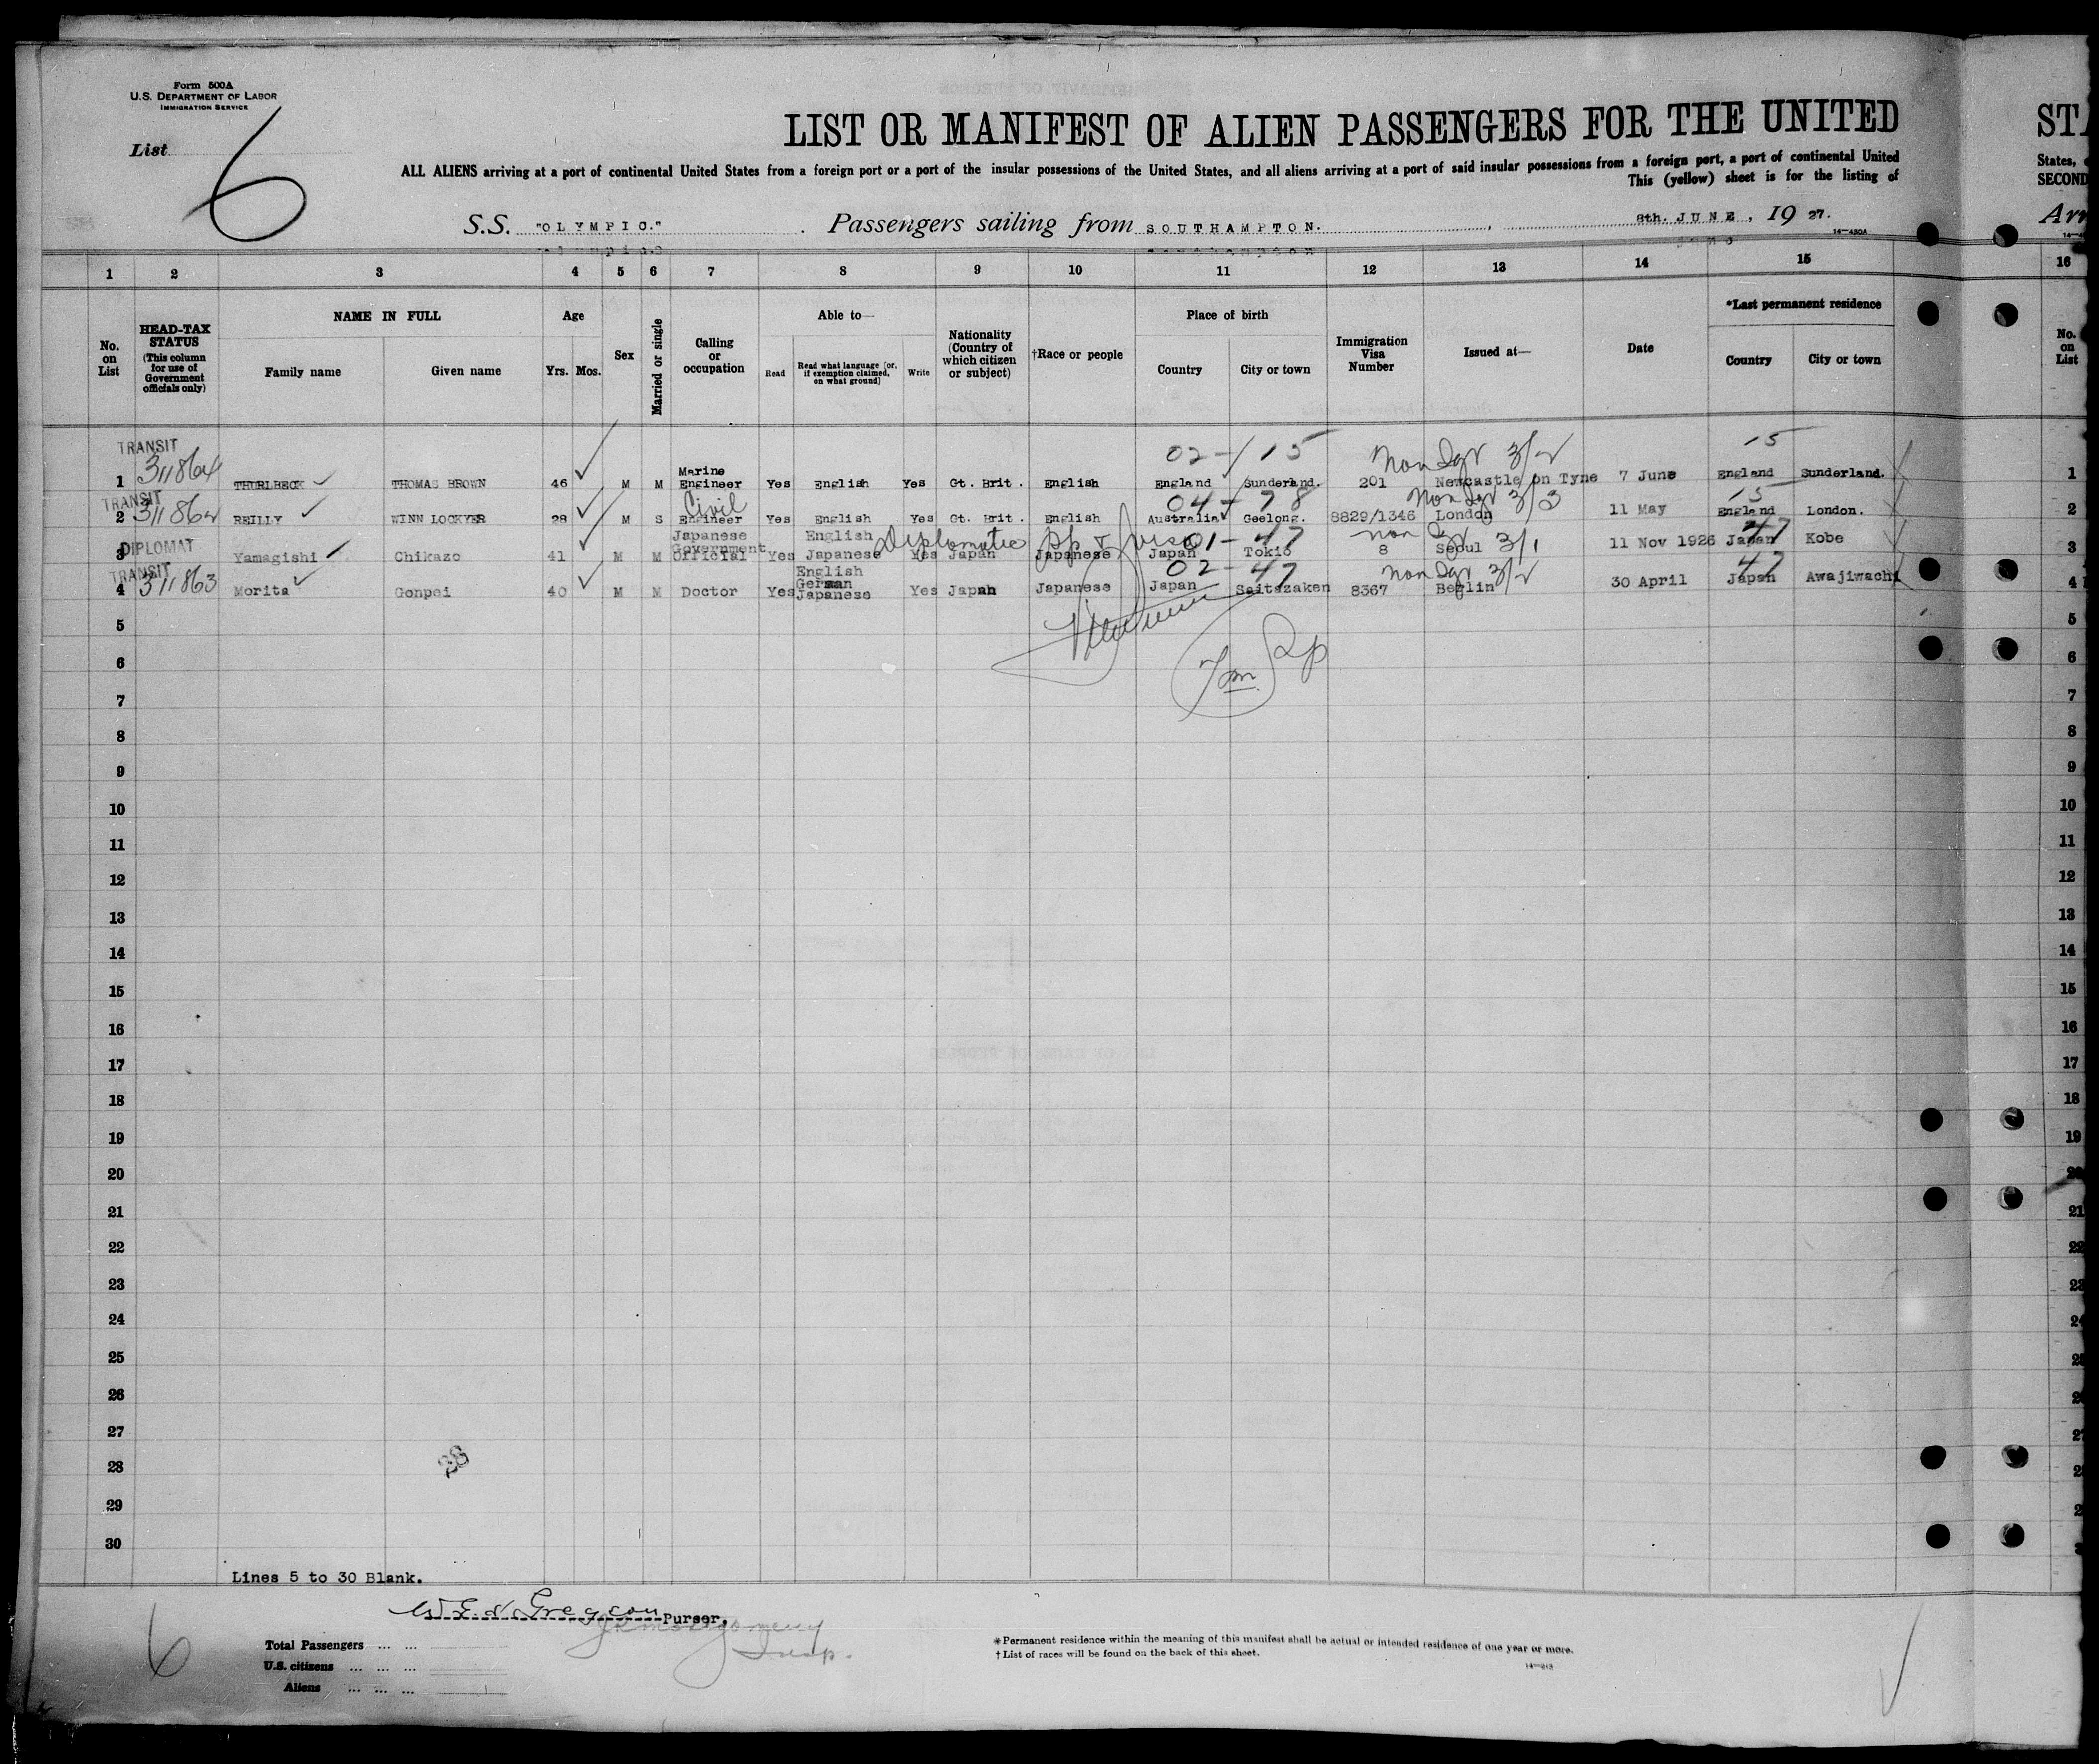 Form 500A
U.S. DEPARTMENT OF LABOR
IMMIGRATION SERVICE
List 6
LIST OR MANIFEST OF ALIEN PASSENGERS FOR THE UNITED
ALL ALIENS arriving at a port of continental United States from a foreign port or a port of the insular possessions of the United States, and all aliens arriving at a port of said insular possessions from a foreign port, a port of continental United
This (yellow) sheet is for the listing of
S.S. "OLYMPIC." Passengers sailing from SOUTHAMPTON. 8th. JUNE, 19 27.
14—430A
STA
States,
SECOND
Arr
1 2 3 4 5 6 7 8 9 10 11 12 13 14 15 16
No. on List
HEAD-TAX STATUS
(This column for use of Government officials only)
NAME IN FULL
Family name
Given name
Age
Yrs. Mos.
Sex
Married or single
Calling or occupation
Able to—
Read
Read what language [or, if exemption claimed, on what ground]
Write
Nationality (Country of which citizen or subject)
†Race or people
Place of birth
Country
City or town
Immigration Visa Number
Issued at—
Date
*Last permanent residence
Country
City or town
No. on List
TRANSIT 02-/15 Non Iqr 3/2 15
1 311864 THURLBECK THOMAS BROWN 46 M M Marine Engineer Yes English Yes Gt. Brit. English England Sunderland. 201 Newcastle on Tyne 7 June England Sunderland. 1
TRANSIT 04-78 Non Iqr 3/3 15
2 311862 REILLY WINN LOCKYER 28 M S Civil Engineer Yes English Yes Gt. Brit. English Australia Geelong. 8829/1346 London 11 May England London. 2
DIPLOMAT Diplomatic pp & visa 01-47 3/1 47
3 Yamagishi Chikazo 41 M M Japanese Government Official Yes English Japanese Yes Japan Japanese Japan Tokio 8 Seoul 11 Nov 1926 Japan Kobe 3
TRANSIT 02-47 Non Iqr 3/2 47
4 311863 Morita Gonpei 40 M M Doctor Yes English German Japanese Yes Japan Japanese Japan Saitazaken 8367 Berlin 30 April Japan Awajiwachi 4
5 5
6 6
7 7
8 8
9 9
10 10
11 11
12 12
13 13
14 14
15 15
16 16
17 17
18 18
19 19
20 20
21 21
22 22
23 23
24 24
25 25
26 26
27 27
28 28
29
30
Lines 5 to 30 Blank.
Gregson Purser.
Insp.
6
Total Passengers ... ...
U.S. citizens ... ... ...
Aliens ... ... ...
*Permanent residence within the meaning of this manifest shall be actual or intended residence of one year or more.
†List of races will be found on the back of this sheet.